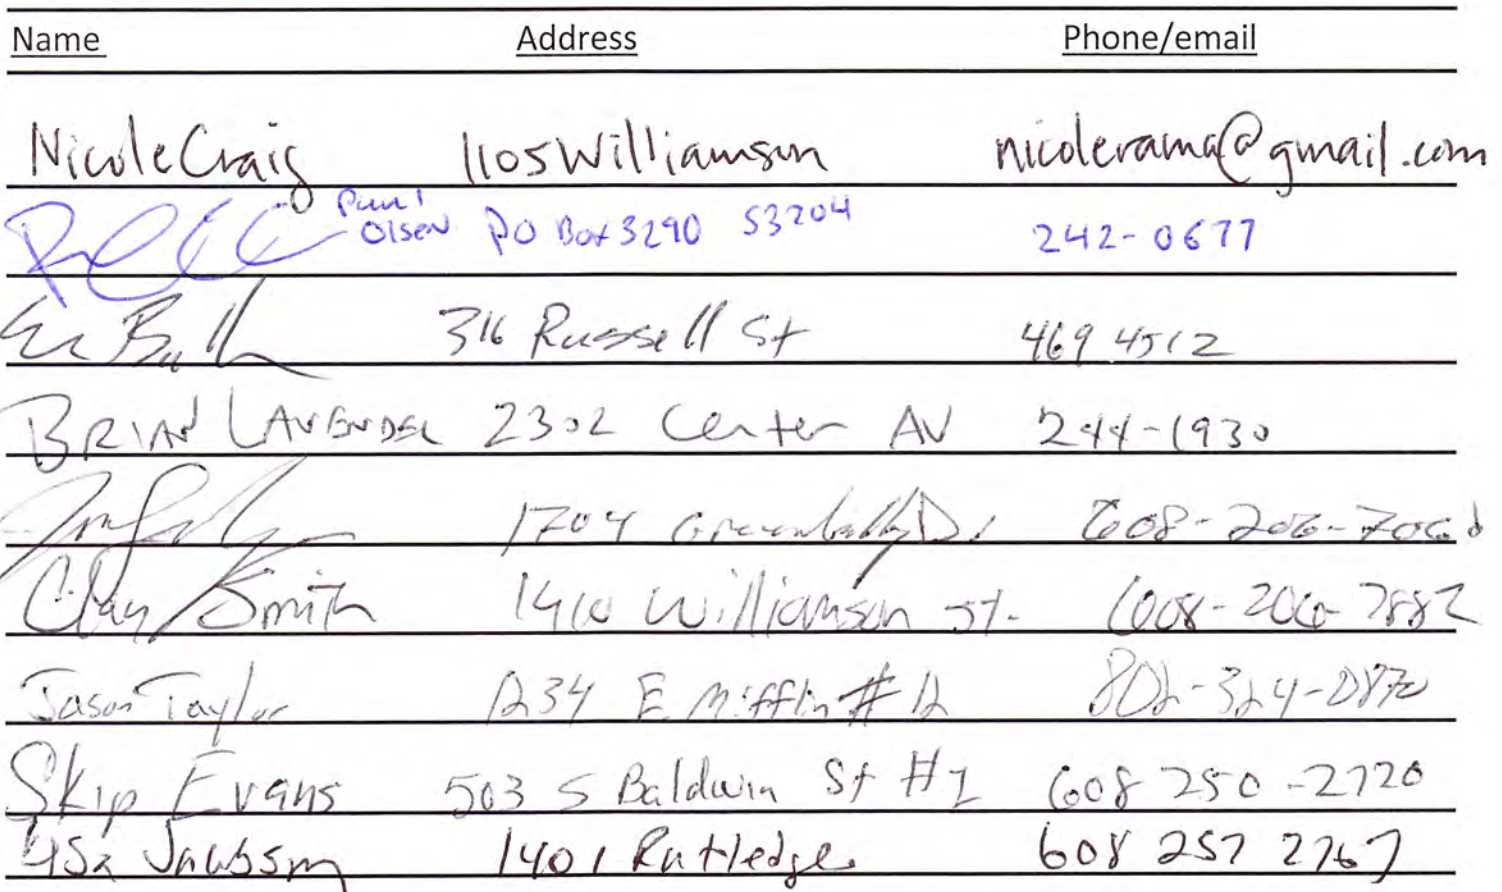 Name Address Phone/email
Nicole Craig 1105 Williamson nicolerama@gmail.com
Paul Olsen PO Box 3290 53704 242-0677
316 Russell St 469 4512
BRIAN LAVENDEL 2302 Center AV 244-1930
1704 Dr 608-206-7060
Clay Smith 1410 Williamson St. 608-206-7882
Jason Taylor 1234 E. Mifflin #12 802-324-0870
Skip Evans 503 S Baldwin St #1 608 250-2720
Jacobson 1401 Rutledge 608 257 2767